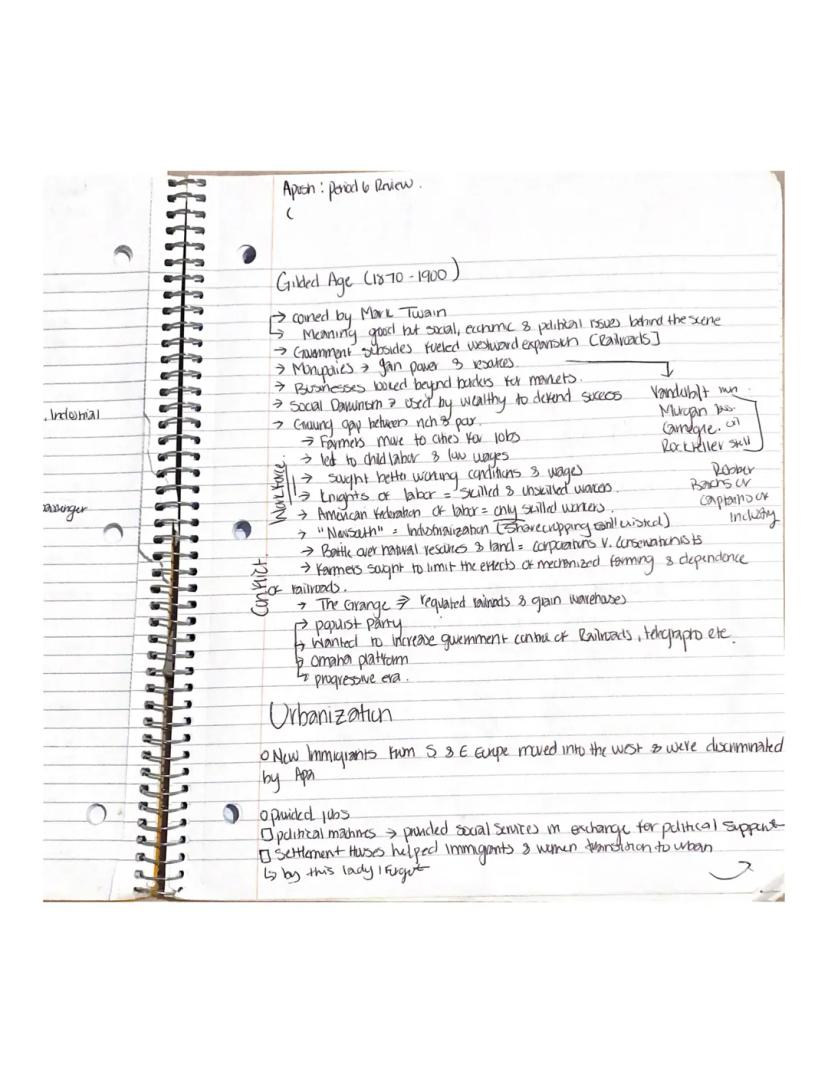 Apush : Period 6 Review .
(
Gilded Age (1870 - 1900)
→ coined by Mark Twain
↳ Meaning good but social, economic & political issues behind the scene
→ Government subsides fueled westward expansion [Railroads]
→ Monpolies → gain power & resources
→ Businesses looked beyond borders for markets.
→ Social Darwinism → used by wealthy to defend success
→ Growing gap between rich & poor.
→ Farmers move to cities for jobs
→ led to child labor & low wages
→ sought better working conditions & wages
→ Knights of labor = skilled & unskilled workers.
→ American Federation of labor = only skilled workers.
→ "New South" = Industrialization (sharecropping still existed)
→ Battle over natural resources & land = corporations v. conservationists
→ Farmers sought to limit the effects of mechanized farming & dependence
of railroads.
→ The Grange → regulated railroads & grain warehouses
→ populist party
↳ Wanted to increase government control of Railroads, telegraphs etc.
↳ omaha platform
↳ progressive era.
Workforce.
Conflict.
Vanderbilt
Morgan
Carnegie. oil
Rockfeller
Robber
Barons or
captains of
industry
. Industrial
Urbanization
o New Immigrants from S & E Europe moved into the west & were discriminated
by Apa
o provided jobs
□ political machines → provided social services in exchange for political support
□ Settlement Houses helped immigrants & women transition to urban
↳ by this lady I forgot